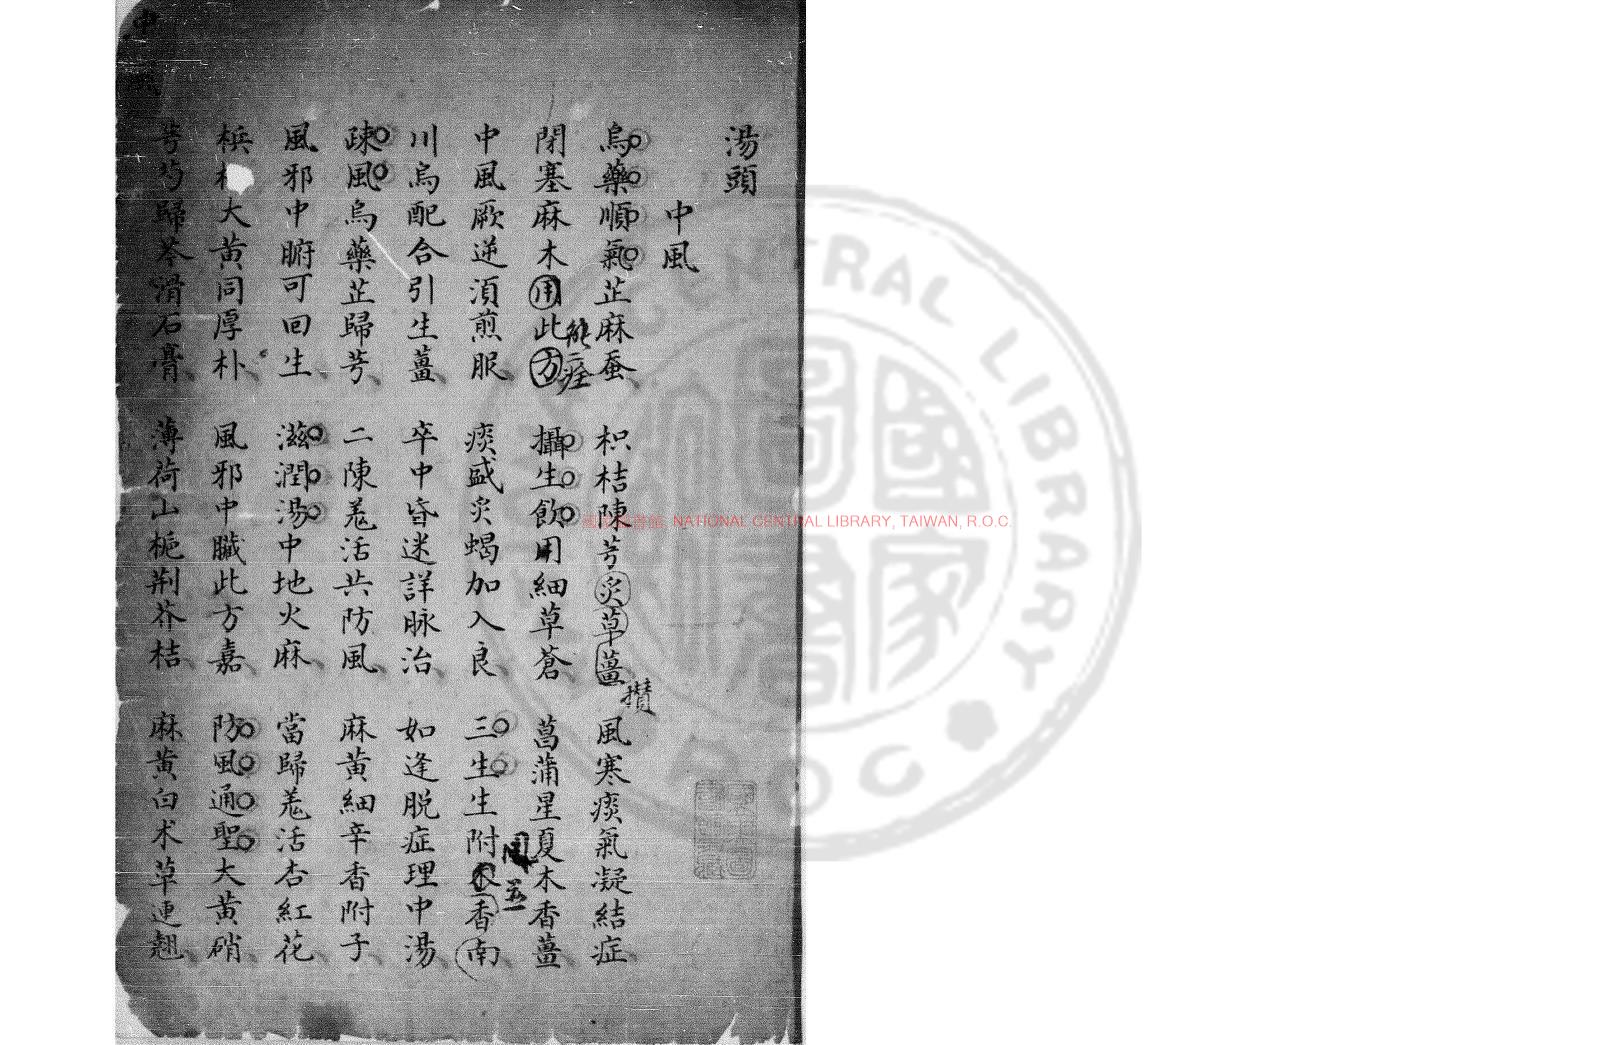 湯頭
中風
烏藥順氣芷麻蚕 枳桔陳芎炙草薑 風寒痰氣凝結症
攢
閉塞麻木用此方 攝生飲用細草蒼 菖蒲星夏木香薑
能痊
中風厥逆須煎服 痰盛炙蝎加入良 三生生附木香南
風並
川烏配合引生薑 卒中昏迷詳脉治 如逢脱症理中湯
疎風烏藥芷歸芎 二陳羗活共防風 麻黄細辛香附子
風邪中腑可回生 滋潤湯中地火麻 當歸羗活杏紅花
梹 大黄同厚朴 風邪中臟此方嘉 防風通聖大黄硝
芎芍歸芩滑石膏 薄荷山梔荆芥桔 麻黄白术草連翹
中風
國家圖書館 NATIONAL CENTRAL LIBRARY, TAIWAN, R.O.C.
CENTRAL LIBRARY
ROC
國家圖書